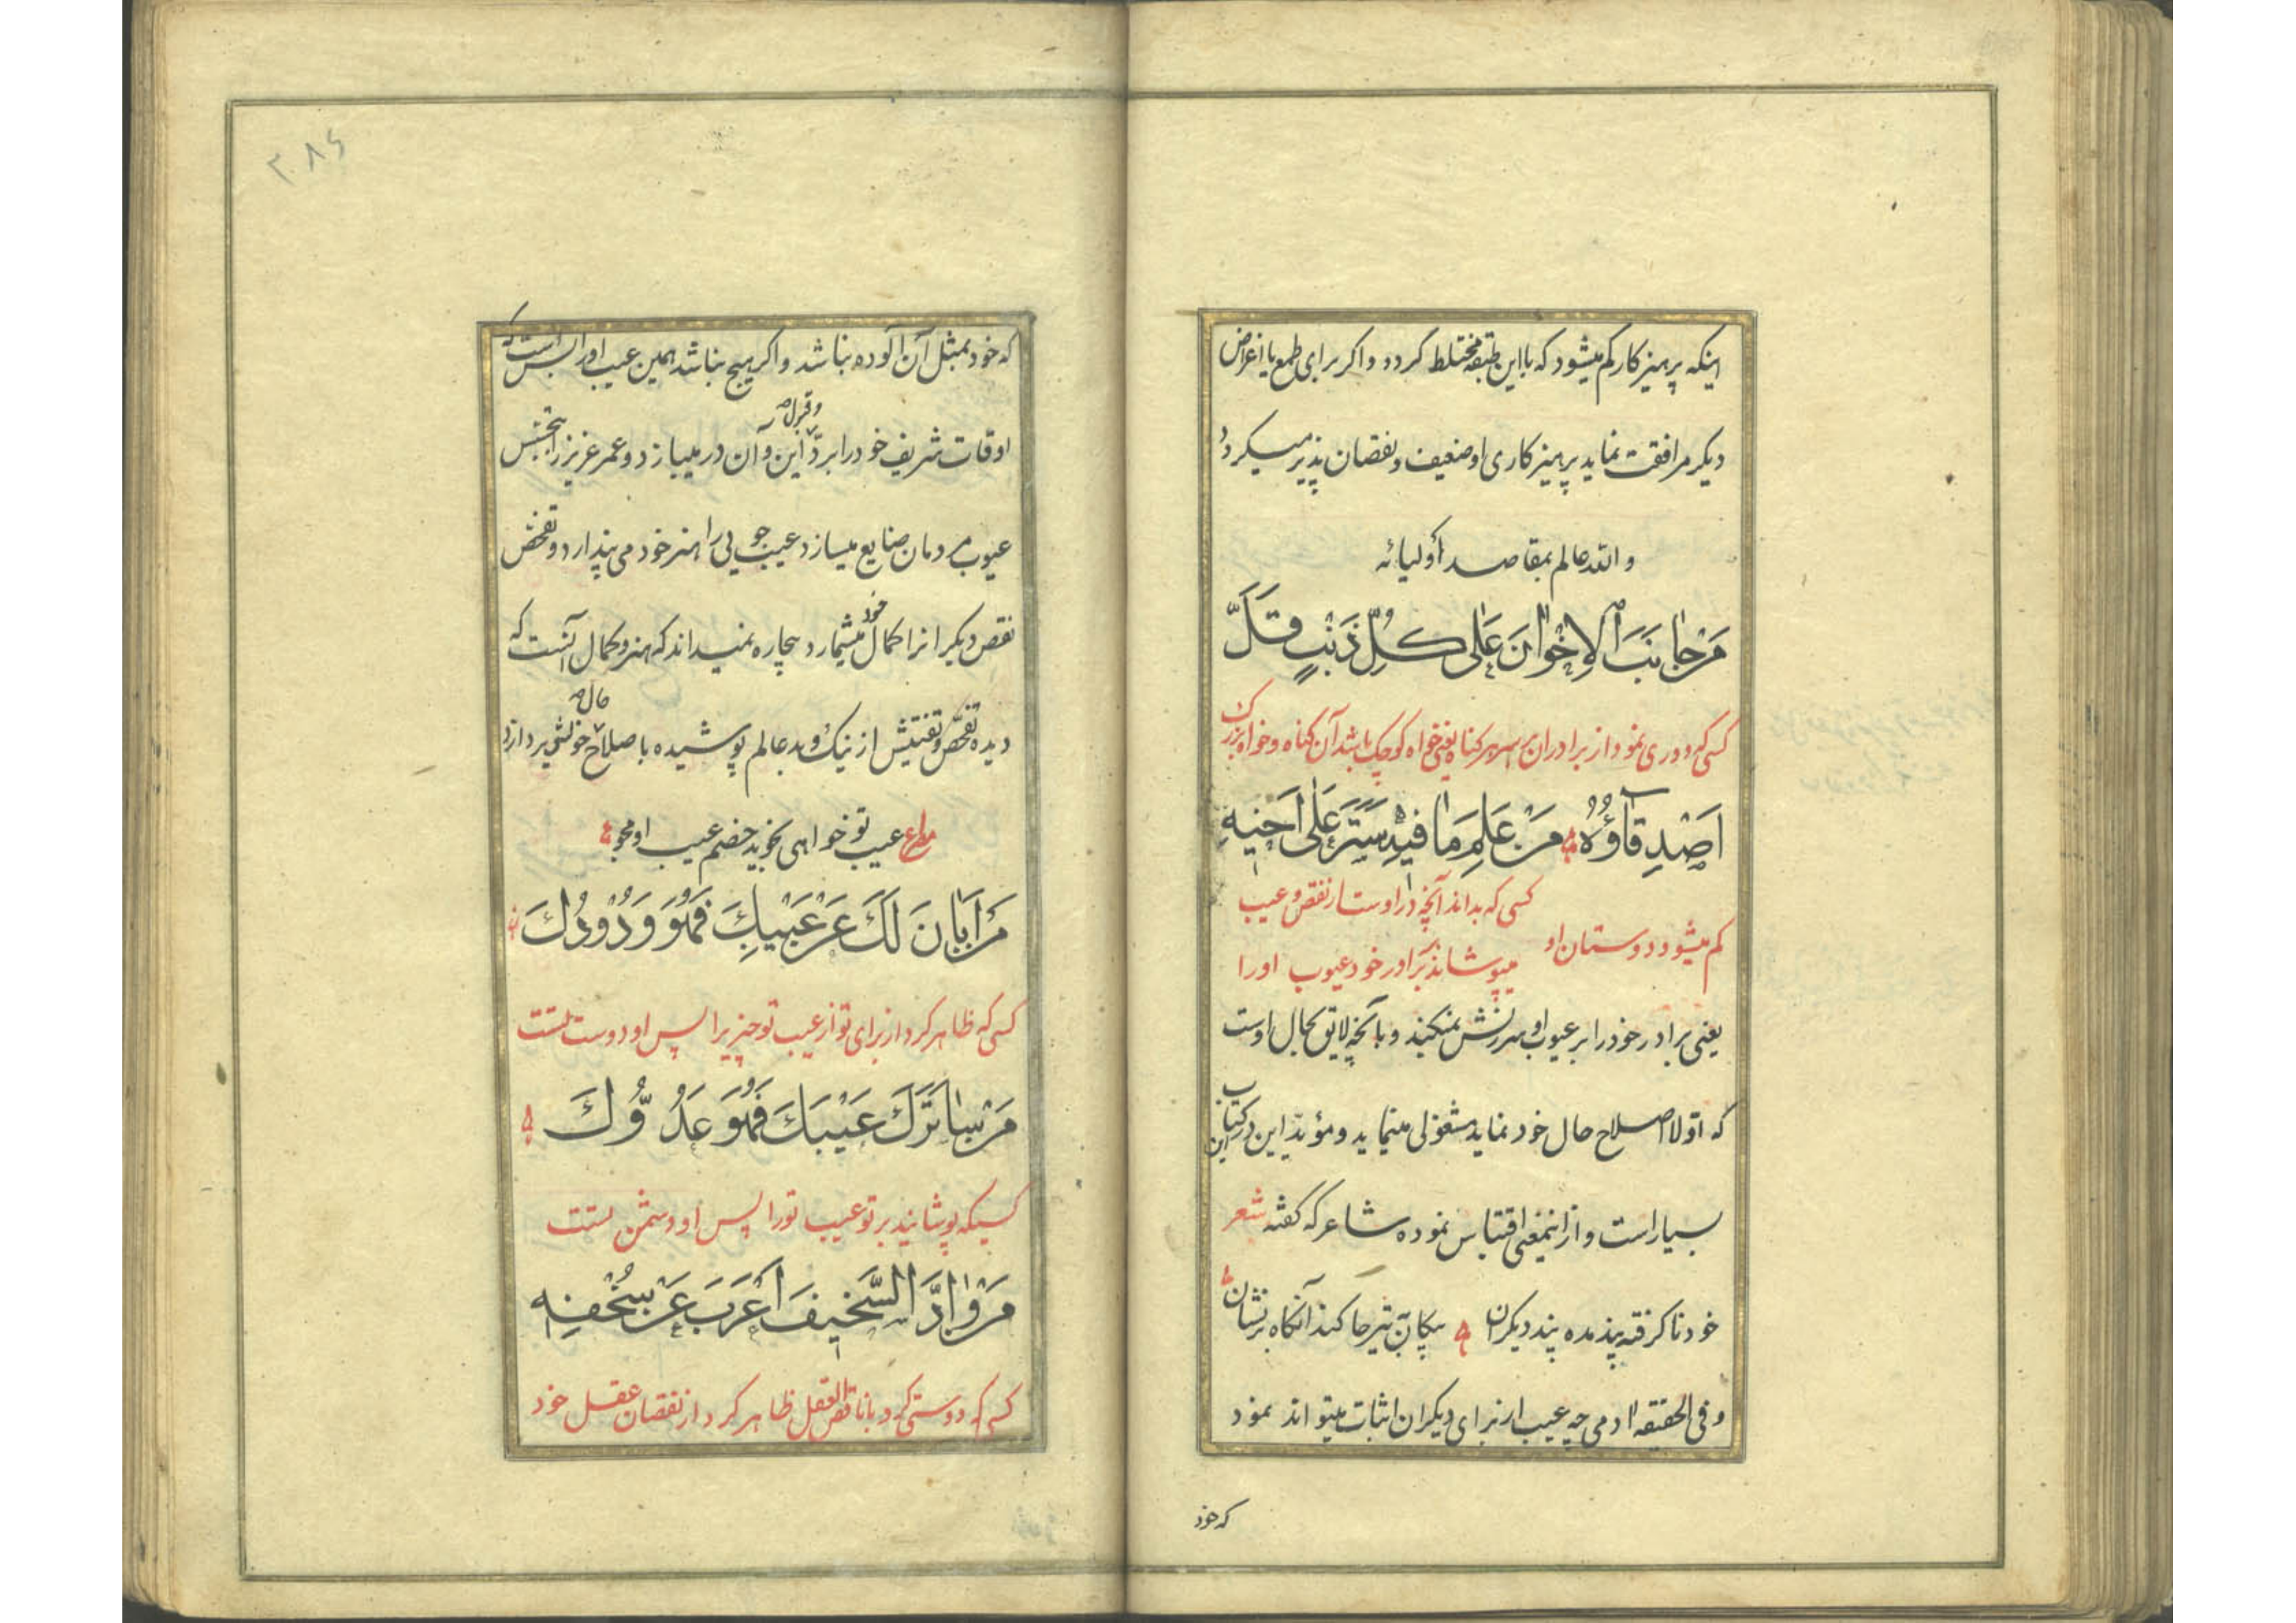 اینکه پرهیزکار کم میشود که با این طبقه مختلط کردد و اکر برای طمع یا اغراض
دیکر مرافقت نماید پرهیزکاری او ضعیف و نقصان پذیر میکردد
والله عالم بمقاصد أولیائه
مَنْ جانَبَ الاِخْوانَ عَلىٰ كُلِّ ذَنْبٍ قَلَّ
کسی که دوری نمود از برادران بر سر هر کناه یعنی خواه کوچک باشد آن کناه و خواه بزرک
اَصْدِقآؤُهُ مَنْ عَلِمَ مَا فيهِ سَتَرَ عَلىٰ اَخيهِ
کسی که بداند آنچه در اوست از نقص و عیب
کم میشود دوستان او
میپوشاند بر برادر خود عیوب او را
یعنی برادر خود را بر عیوب او سرزنش نمیکند و بآنچه لایق بحال اوست
که اوّلا اصلاح حال خود نماید مشغولی مینماید و مؤید این در کتاب این
بسیار است و از اینمعنی اقتباس نموده شاعر که کفته شعر
خود ناکرفته پند مده پند دیکران پیکان به تیر جا کند آنکاه بر نشان
و فی الحقیقه ادمی چه عیب از برای دیکران اثبات میتواند نمود
که خود
۲۸۶
که خود بمثل آن آلوده نباشد و اکر هیچ نباشد همین عیب او را بس است که
اوقات شریف خود را بردّ و قبول این و آن در میبازد و عمر عزیز را بتجسّس
عیوب مردمان ضایع میسازد عیب جویی را هنر خود می پندارد و تفحّص
نقص دیکرانرا کمال خود میشمارد بیچاره نمیداند که هنر و کمال آنست که
دیده تفحّص و تفتیش از نیک و بد عالم پوشیده باصلاح حال خویش پردازد
مصرع عیب تو خواهی نکوید خصم عیب او مجو
مَنْ اَبانَ لَكَ عَنْ عَيْبِكَ فَهُوَ وَدُودُكَ
کسی که ظاهر کرد از برای تو از عیب تو چیزیرا پس او دوست تست
مَنْ ساتَرَكَ عَيْبَكَ فَهُوَ عَدُوُّكَ
کسیکه پوشانید بر تو عیب تو را پس او دشمن تست
مَنْ وٰادَّ السَّخيفَ اَعْرَبَ عَنْ سُخْفِهِ
کسی که دوستی کرد با ناقص العقل ظاهر کرد از نقصان عقل خود